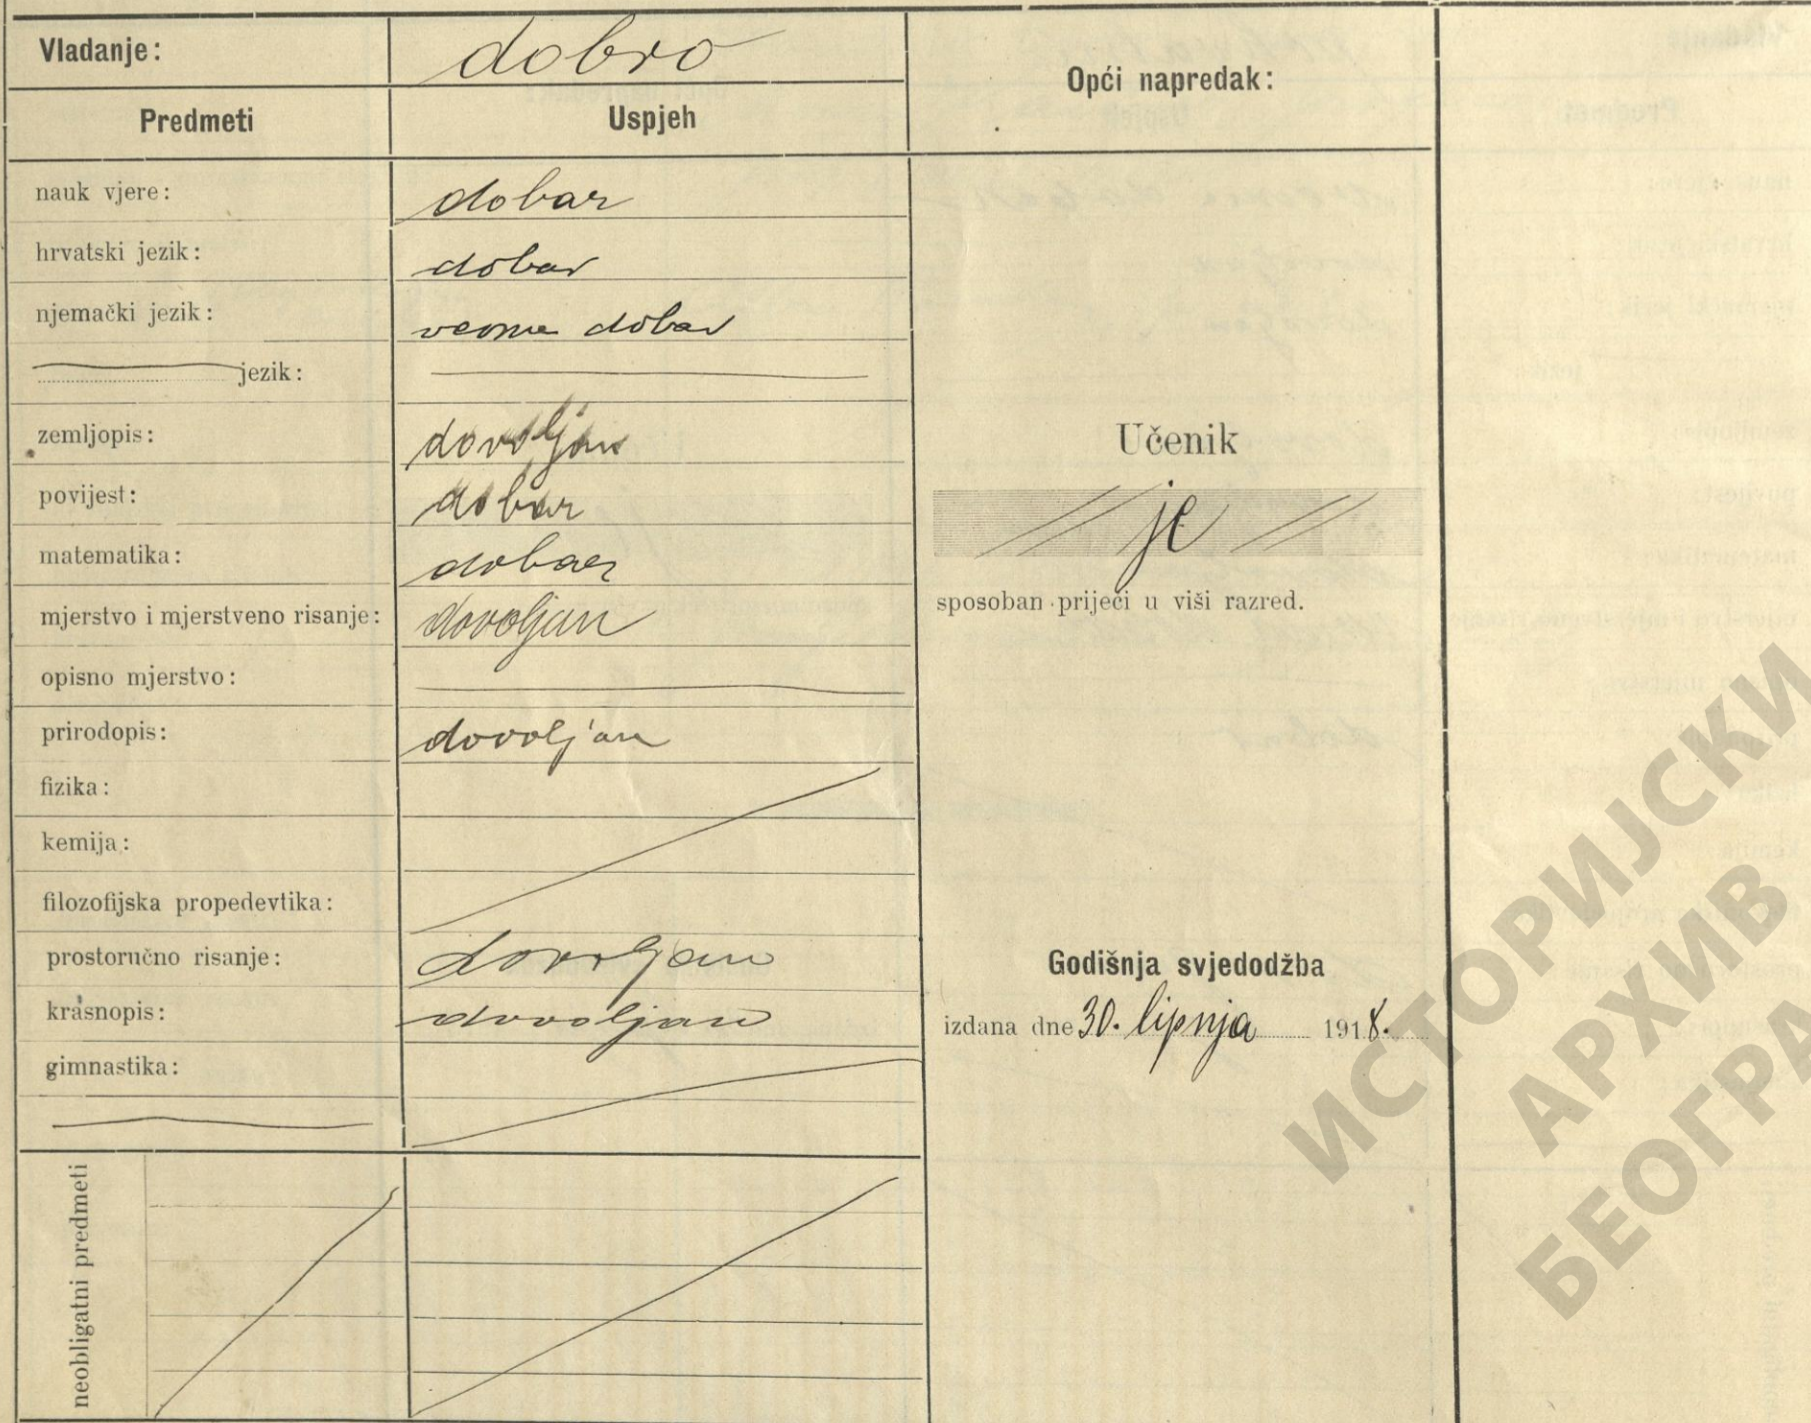 Vladanje: dobro
Opći napredak:
Predmeti Uspjeh
nauk vjere: dobar
hrvatski jezik: dobar
njemački jezik: veoma dobar
jezik:
zemljopis: dovoljan
povijest: dobar
matematika: dobar
mjerstvo i mjerstveno risanje: dovoljan
opisno mjerstvo:
prirodopis: dovoljan
fizika:
kemija:
filozofijska propedevtika:
prostoručno risanje: dovoljan
krasnopis: dovoljan
gimnastika:
neobligatni predmeti
Učenik
je
sposoban prijeći u viši razred.
Godišnja svjedodžba
izdana dne 30. lipnja 1918.
ИСТОРИЈСКИ
АРХИВ
БЕОГРА